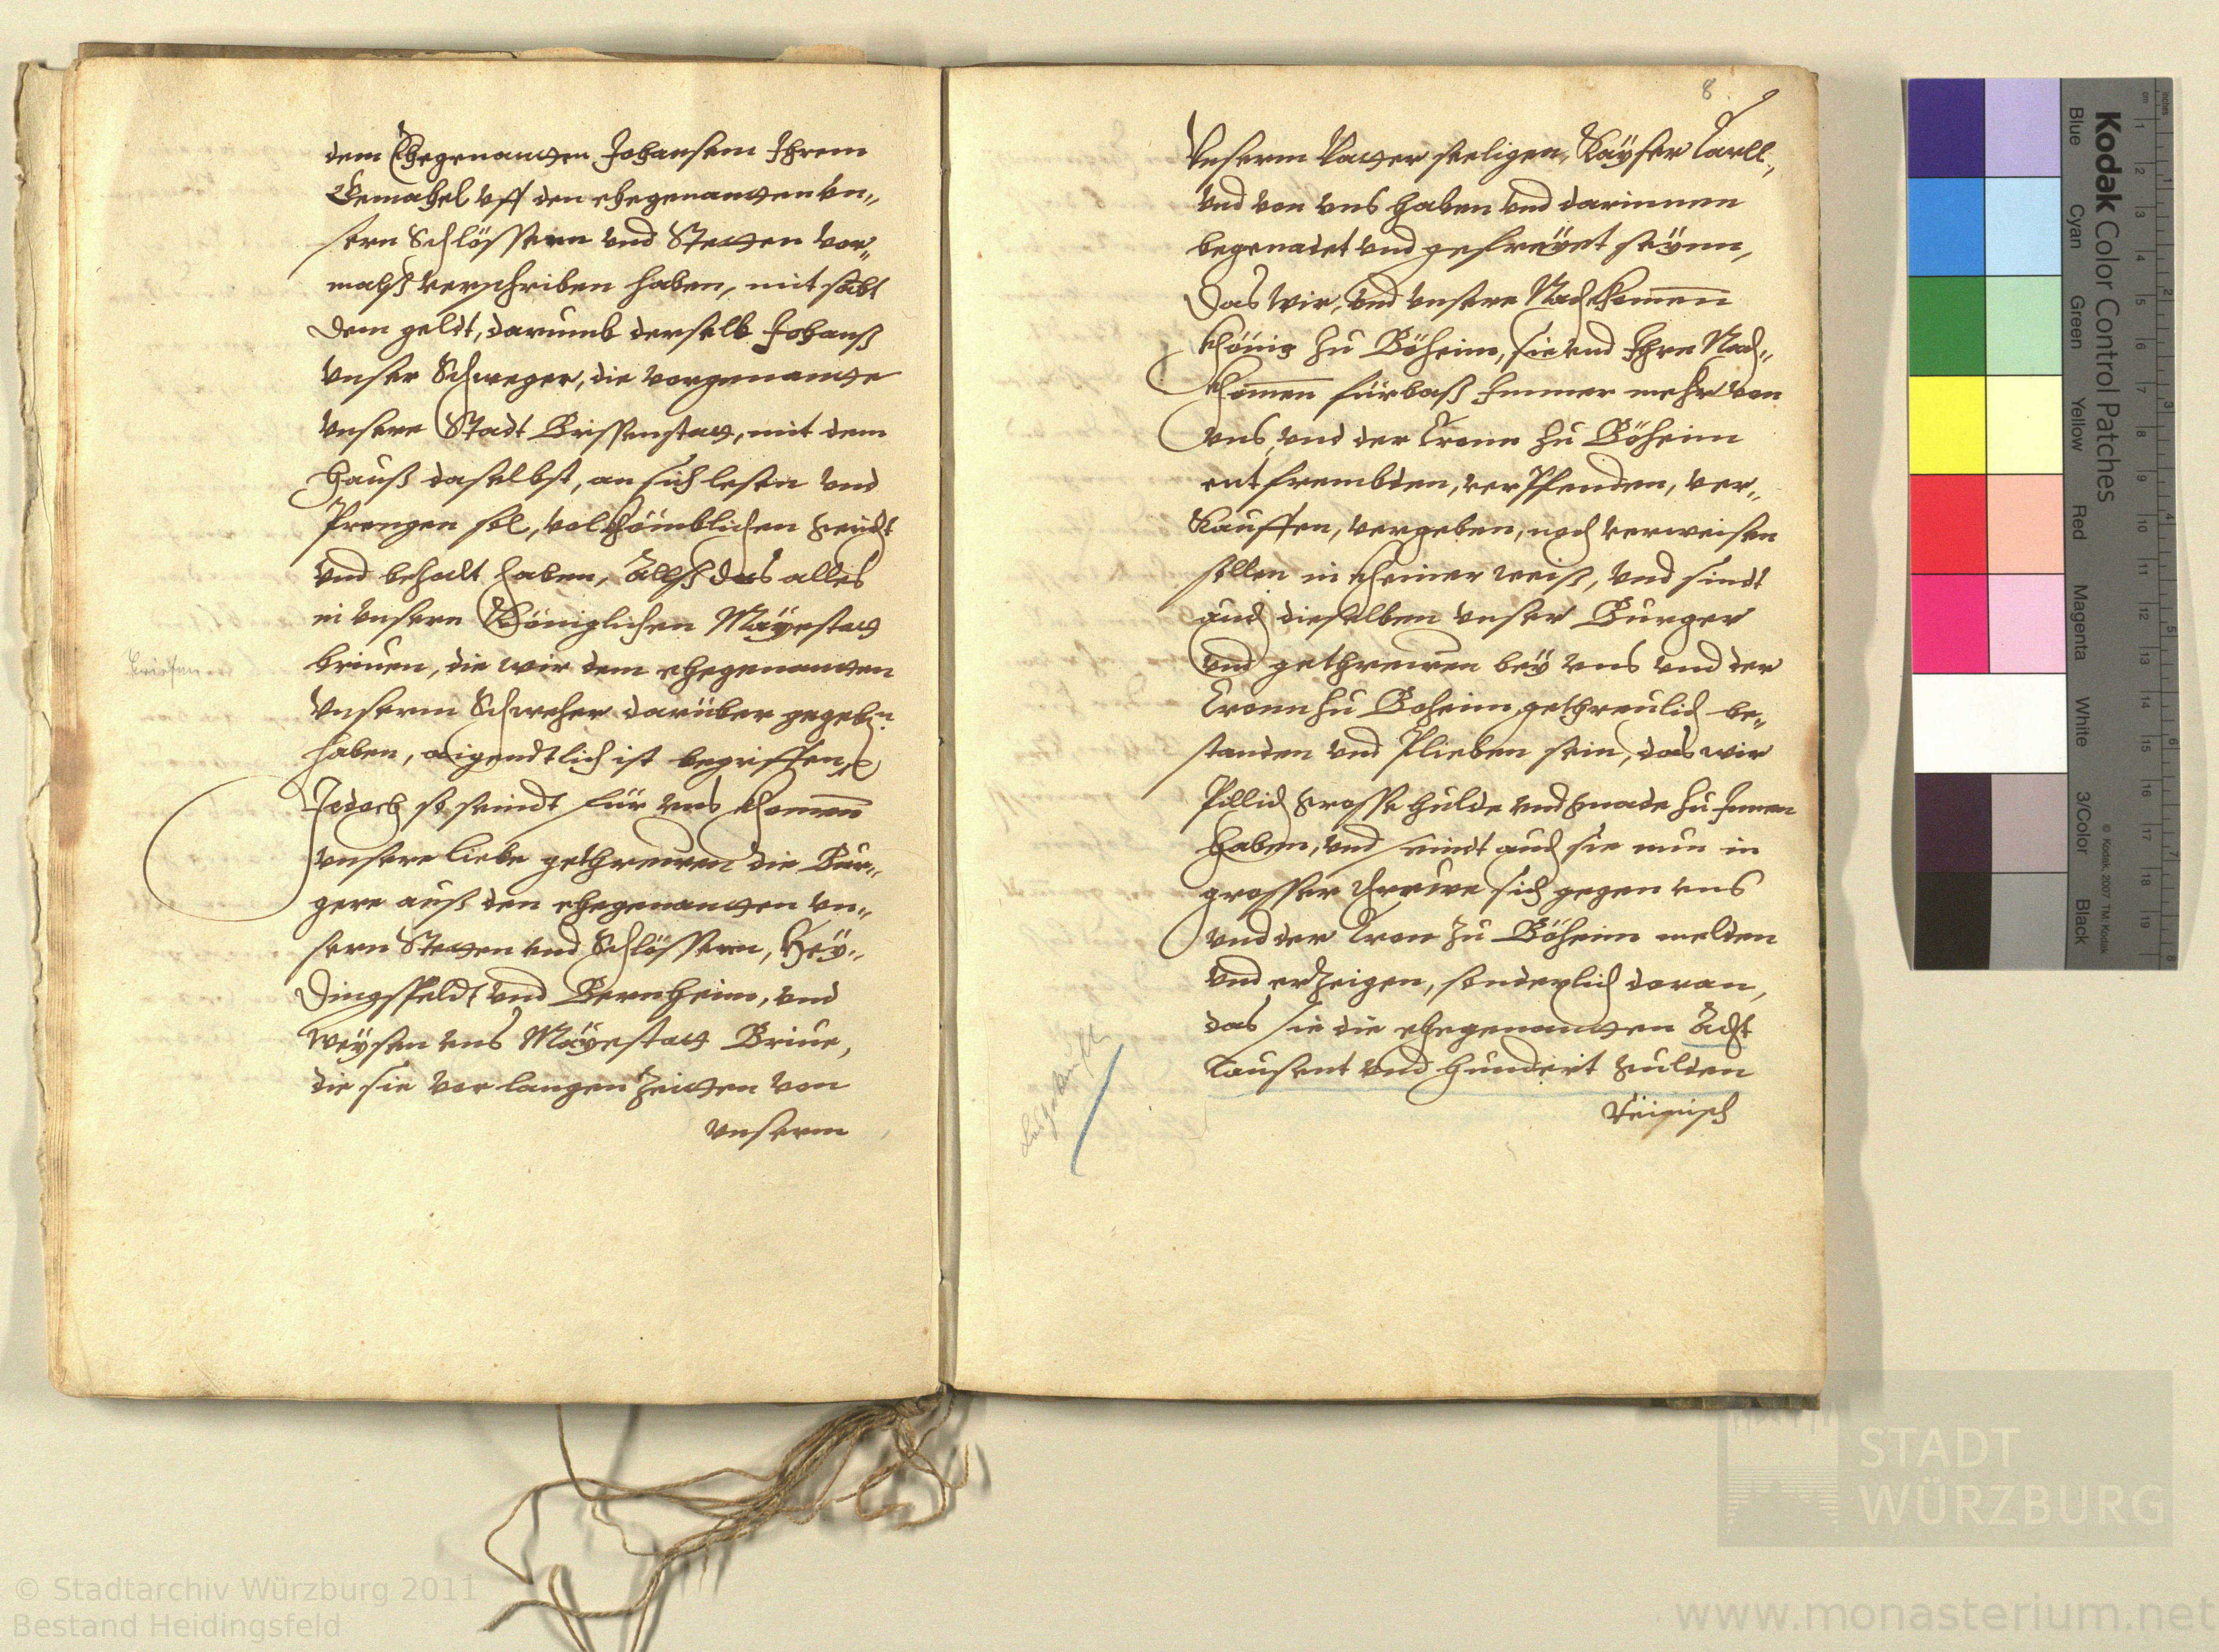 dem Ehegenanten Johansem Ihrem
Gemahel vff den ehegenanten vn„
sern Schlössern vnd Stetten vor„
malß verschriben haben, mit sabt
dem geldt, darumb derselb Johanß
vnser Schweger, die vorgenante
vnsere Stadt Brissenstatt, mit dem
Hauß daselbst, an sich lesen vnd
Prengen sol, volkhömblichen
vnd behalt haben, Allß das alles
in vnsern Königlichen Mayestatt
briuen, die wir dem ehegenanten
vnserm Schweher darüber gegeben
haben, aigendtlich ist begriffen,
Jedoch so seindt für vns khomenn
vnsere liebe gethrewen die Bur„
gere auß den ehegenanten vn„
sern Stetten vnd Schlössern, Hey„
dingsfeldt vnd Bernheim, vnd
weysen vns Mayestatt Briue,
die sie vor langen Zeitten von
vnserm
briefen
8
Vnserm Vatter seeligen, Kayser Carll,
vnd von vns haben vnd darinnen
begenadet vnd gefreyet seynn,
Das wir, vnd vnsere Nachkomenn
König zu Böheim, sie vnd Ihre Nach„
khomen fürbaß Immer mehr von
vns, vnd der Cronn zu Böheim
entfrembden, verPfenden, ver„
Kauffen, vergeben, noch verweisen
sollen in kheiner weiß, vnd sindt
auch dieselben vnser Burger
vnd gethrewen bey vns vnd der
Cronn zu Boheim gethreulich be„
standen vnd Plieben sein, das wir
Pillich Grosse hulde vnd Gnade zu Innen
haben, vnd seindt auch sie nun in
grosser threwe sich gegen vns
vnd der Cron zu Böheim melden
vnd erzeigen, sonderlich doran,
das sie die ehegenanten Acht
tausent vnd hundert Gulden
Reinisch
Kodak Color Control Patches
Blue
Cyan
Green
Yellow
Red
Magenta
White
3/Color
Black
© Kodak, 2007 TM: Kodak
STADT
WÜRZBURG
© Stadtarchiv Würzburg 2011
Bestand Heidingsfeld
www.monasterium.net